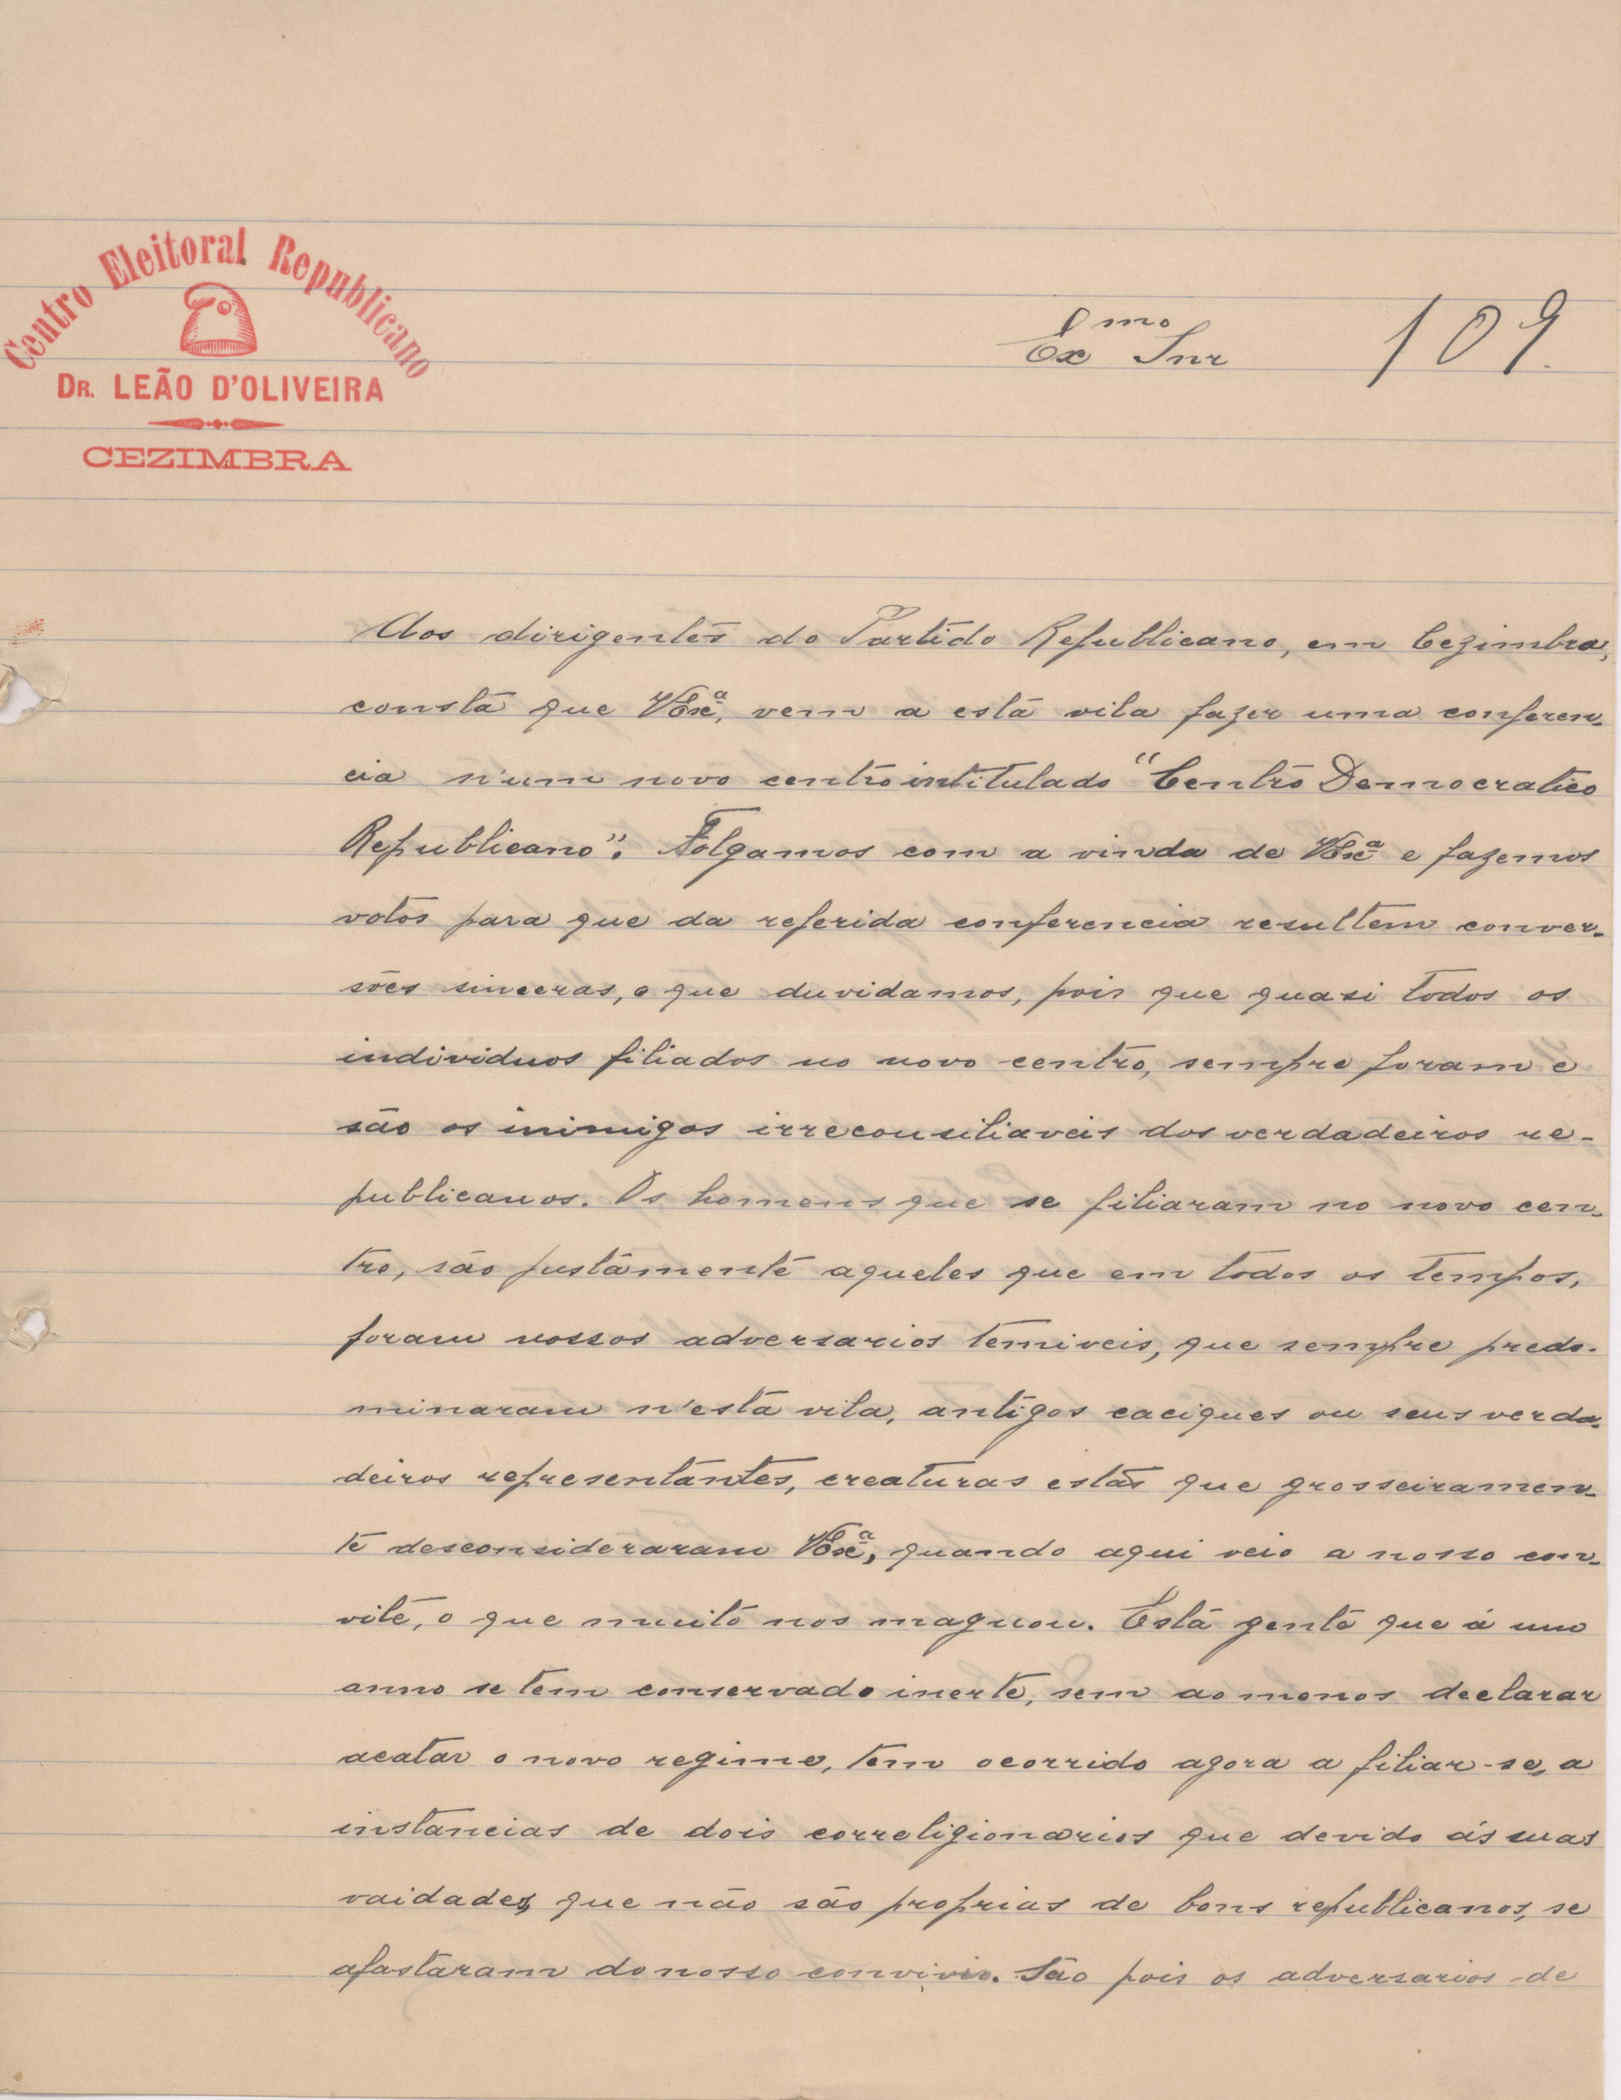 Centro Eleitoral Republicano
DR. LEÃO D'OLIVEIRA
CEZIMBRA
Exmo Snr
109.
Aos dirigentes do Partido Republicano, em Cezimbra,
consta que VExª, vem a esta vila fazer uma conferen-
cia n'um novo centro intitulado "Centro Democratico
Republicano". Folgamos com a vinda de VExª e fazemos
votos para que da referida conferencia resultem conver-
sões sinceras, o que duvidamos, pois que quasi todos os
individuos filiados no novo centro, sempre foram e
são os inimigos irreconsiliaveis dos verdadeiros re-
publicanos. Os homens que se filiaram no novo cen-
tro, são justamente aqueles que em todos os tempos,
foram nossos adversarios temiveis, que sempre predo-
minaram n'esta vila, antigos caciques ou seus verda-
deiros representantes, creaturas estas que grosseiramen-
te desconsideraram VExª, quando aqui veio a nosso con-
vite, o que muito nos maguou. Esta gente que á um
anno se tem conservado inerte, sem ao menos declarar
acatar o novo regime, tem ocorrido agora a filiar-se, a
instancias de dois correligionarios que devido ás suas
vaidades, que não são proprias de bons republicanos, se
afastaram do nosso convivio. São pois os adversarios de